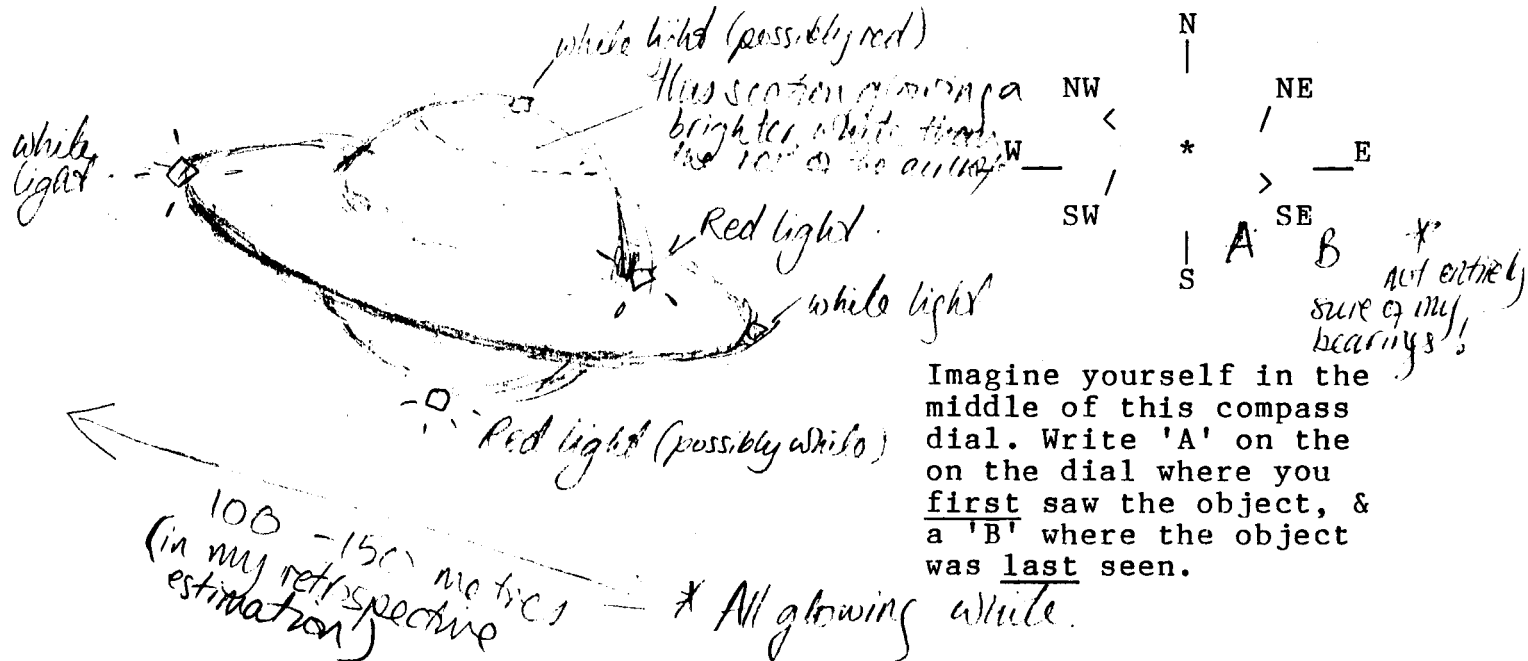 white light (possibly red)
this section glowing a
brighter white than
the rest of the
white
light
Red light.
white light
Red light (possibly white)
100 - 150 metres
(in my retrospective
estimation)
* All glowing white.
N
NW NE
W * E
SW SE
S
A B
*
not entirely
sure of my
bearings!
Imagine yourself in the
middle of this compass
dial. Write 'A' on the
on the dial where you
first saw the object, &
a 'B' where the object
was last seen.